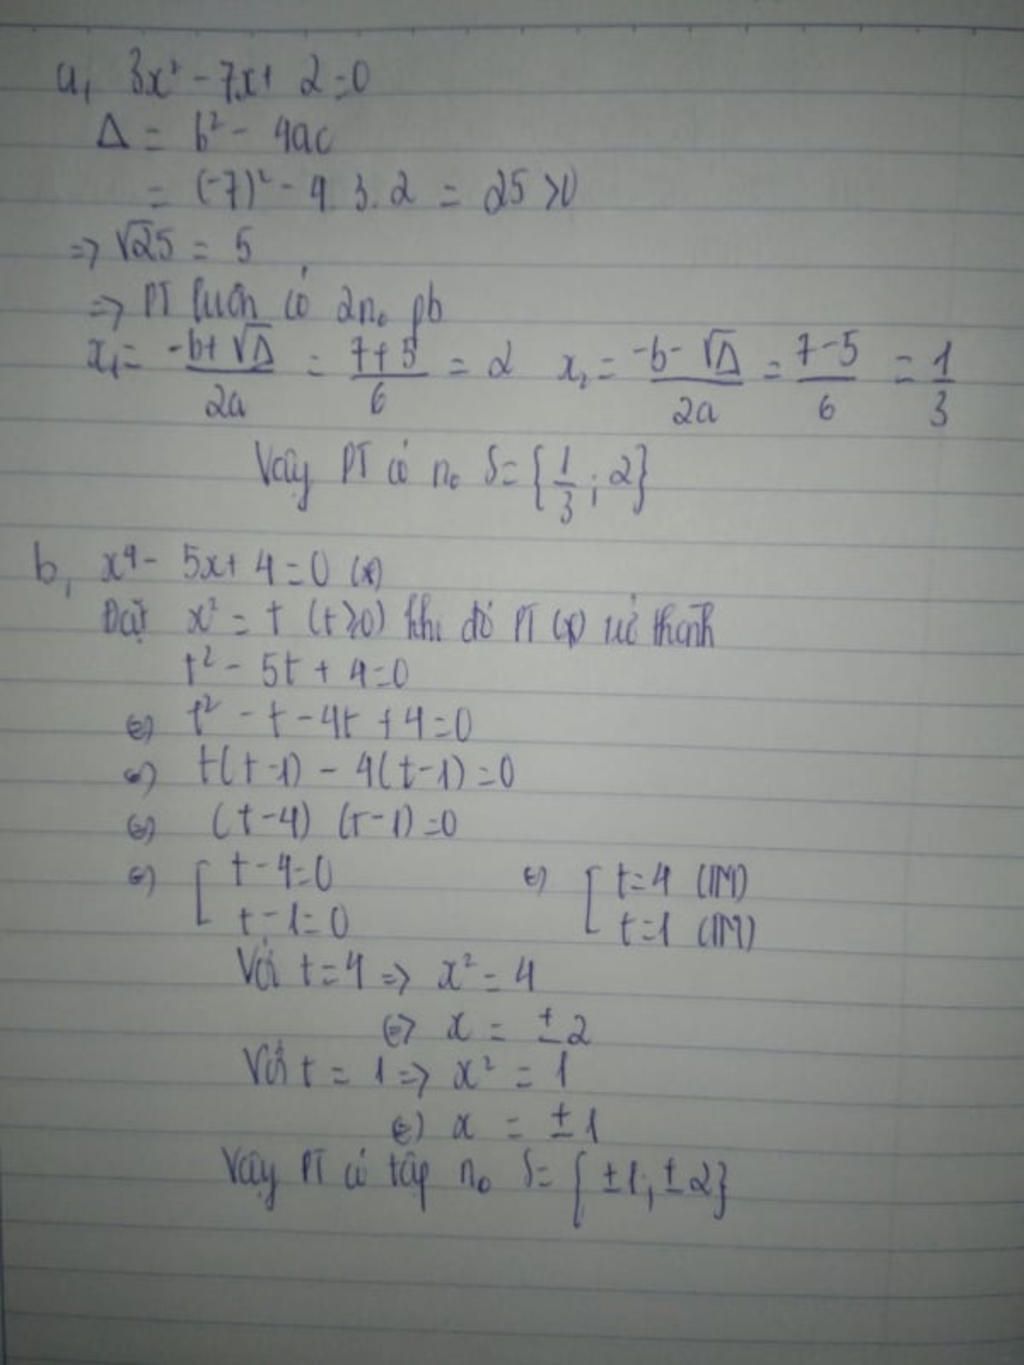 a, 3x² - 7x + 2 = 0
Δ = b² - 4ac
= (-7)² - 4.3.2 = 25 > 0
=> √25 = 5
=> PT luôn có 2 n₀ pb
x₁ = (-b + √Δ)/2a = (7 + 5)/6 = 2 x₂ = (-b - √Δ)/2a = (7 - 5)/6 = 1/3
Vậy PT có n₀ S = {1/3 ; 2}
b, x⁴ - 5x + 4 = 0 (*)
Đặt x² = t (t ≥ 0) khi đó PT (*) trở thành
t² - 5t + 4 = 0
⇔ t² - t - 4t + 4 = 0
⇔ t(t - 1) - 4(t - 1) = 0
⇔ (t - 4) (t - 1) = 0
⇔ [ t - 4 = 0 ⇔ [ t = 4 (TM)
t - 1 = 0 t = 1 (TM)
Với t = 4 => x² = 4
⇔ x = ±2
Với t = 1 => x² = 1
⇔ x = ±1
Vậy PT có tập n₀ S = {±1; ±2}